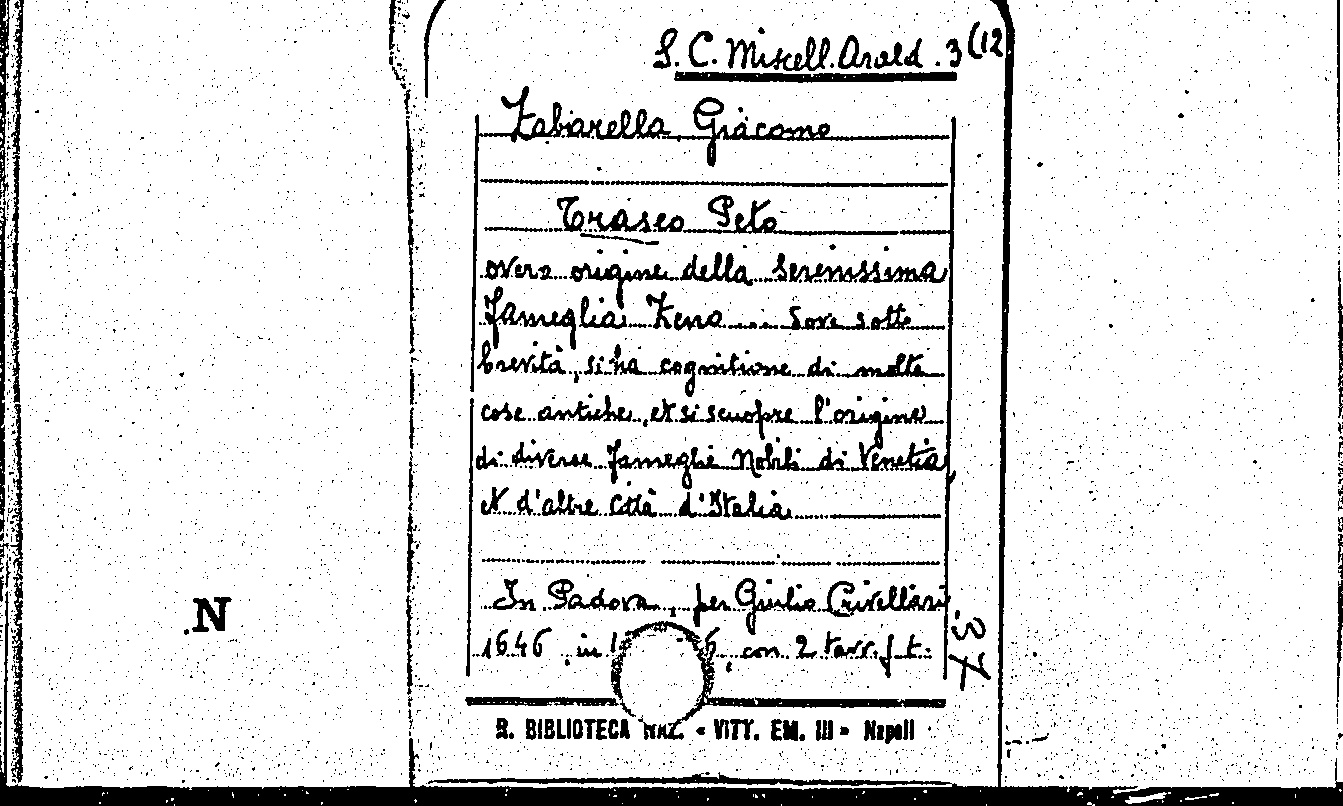 S. C. Miscell. Arald. 3(12
Zabarella Giacomo
Traseo Peto
overo origine della Serenissima
Fameglia Zena ... Dove sotto
brevità, si ha cognitione di molte
cose antiche, et si scuopre l'origine
di diverse Fameglie Nobili di Venetia,
et d'altre Città d'Italia
In Padova, per Giulio Crivellari,
1646, in 6, con 2 tavv. f. t.
37
N
R. BIBLIOTECA NAZ. « VITT. EM. III » Napoli